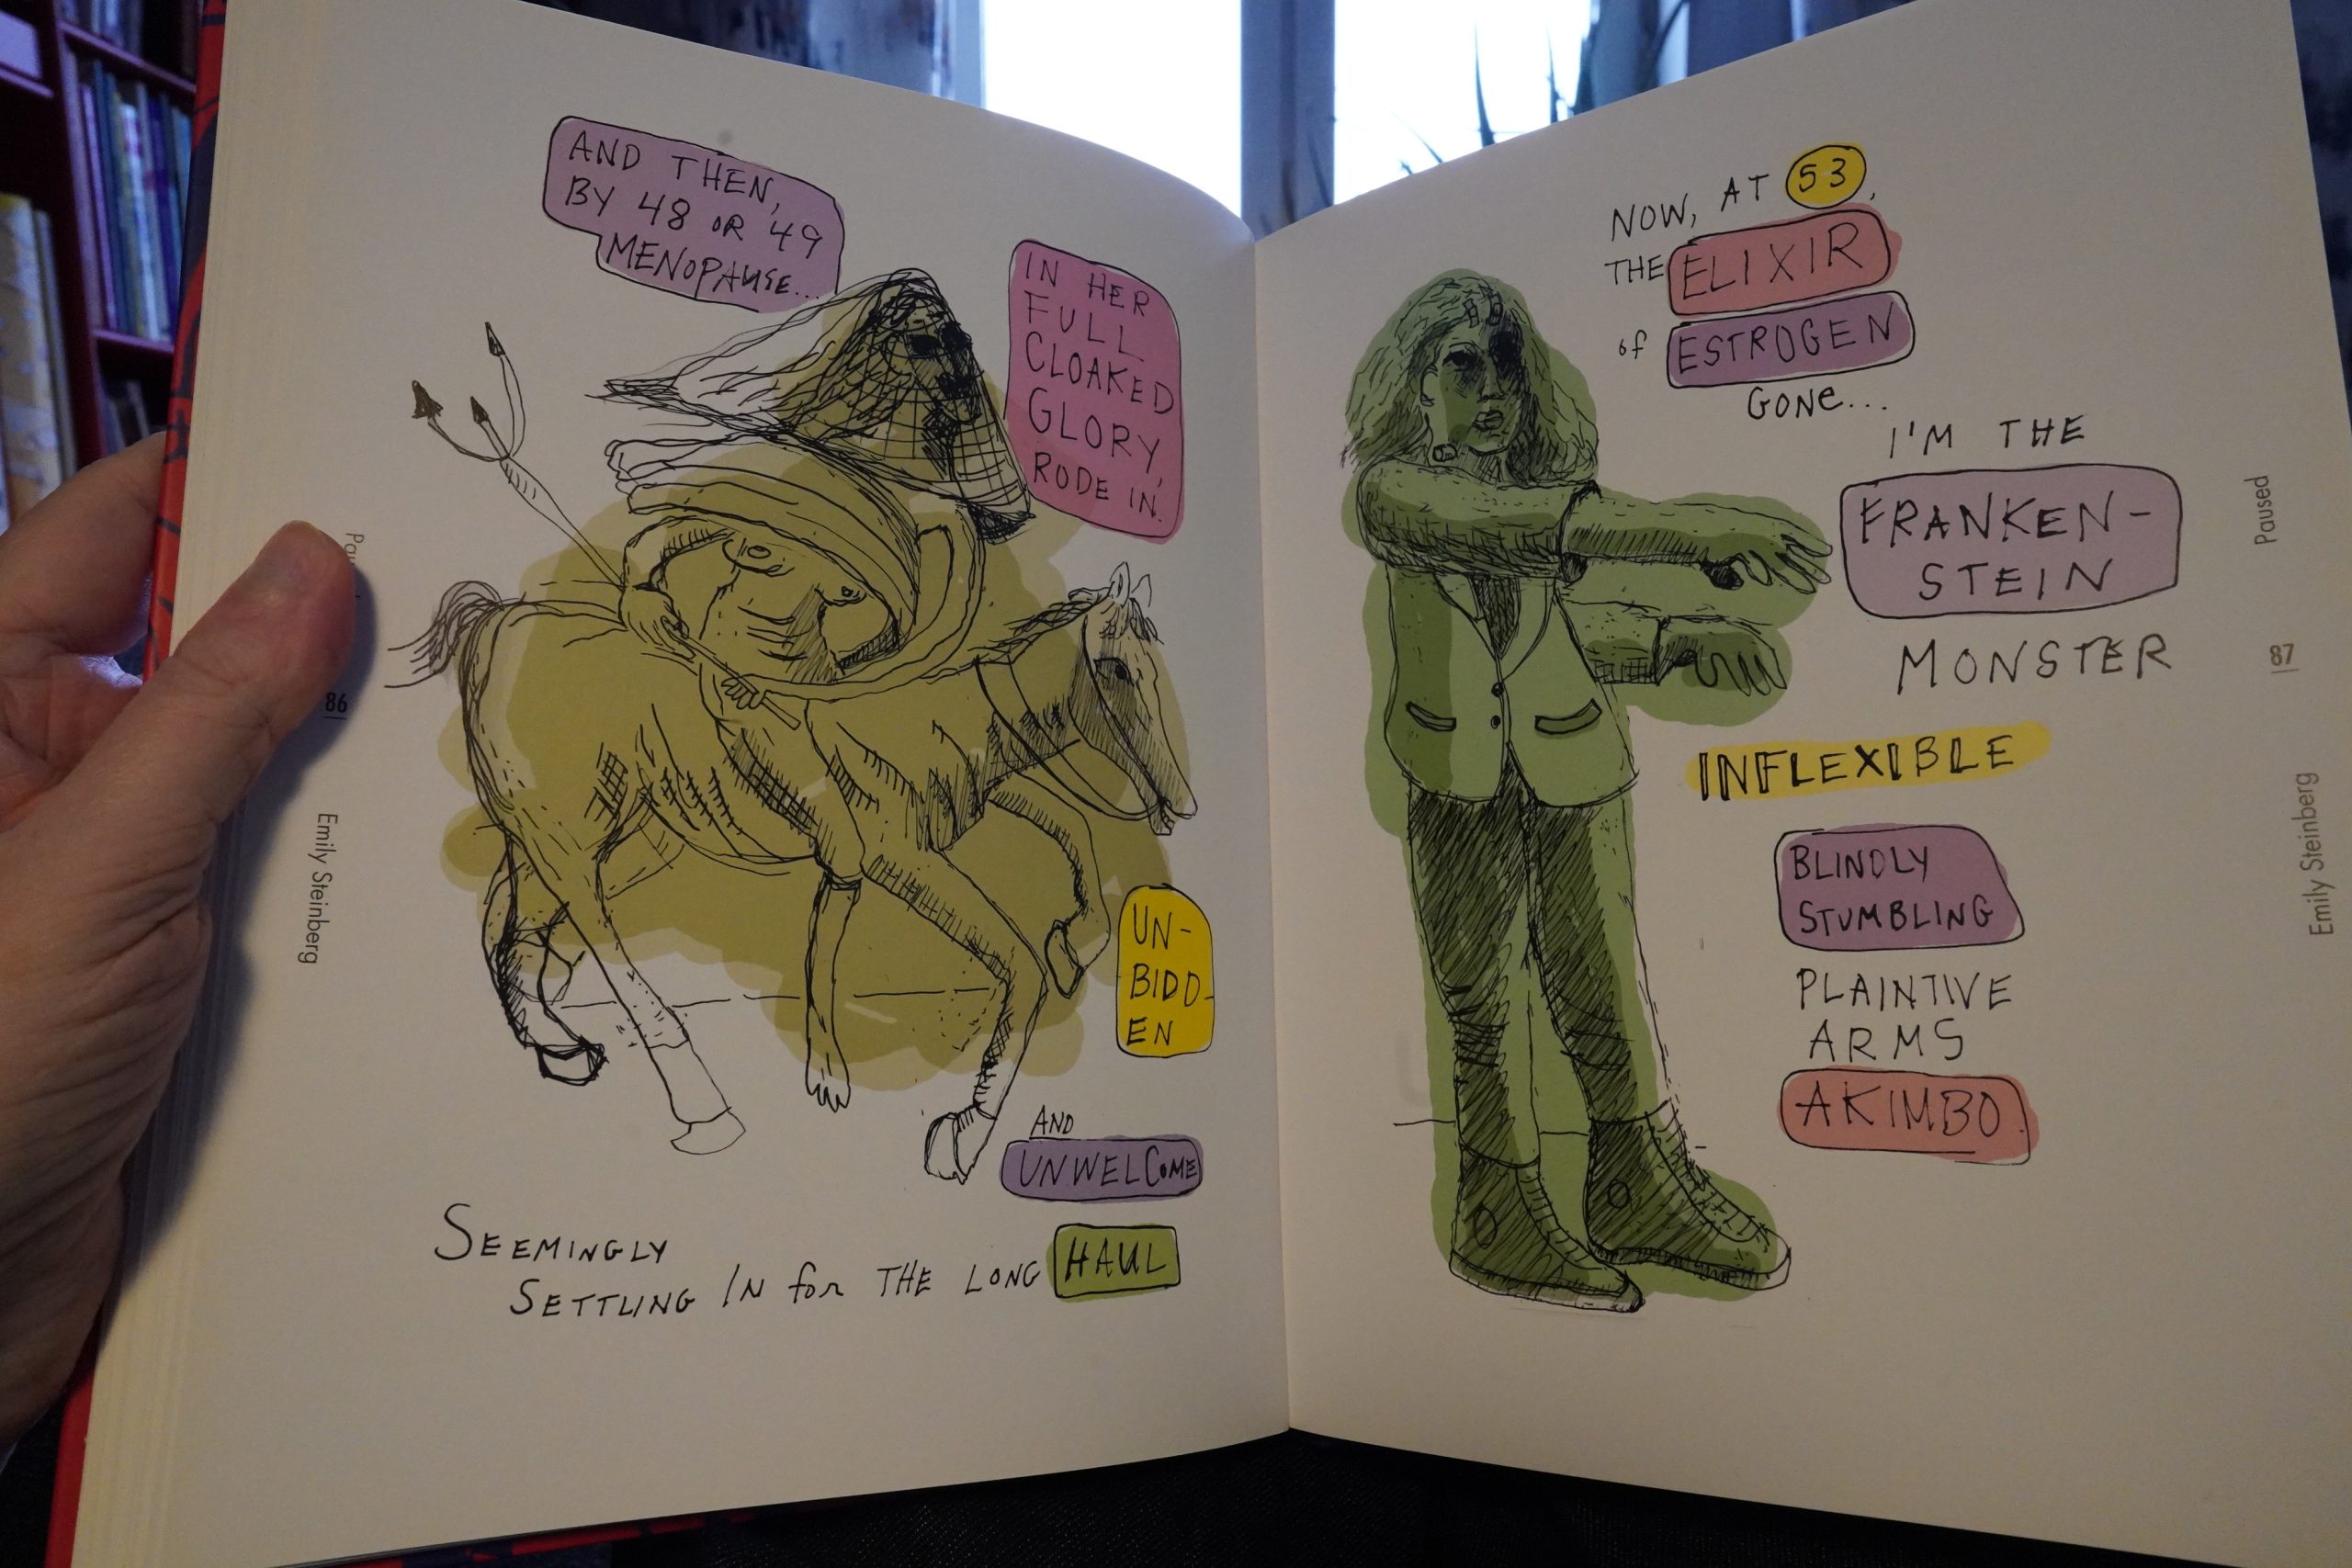 AND THEN,
BY 48 OR 49
MENOPAUSE...
IN HER
FULL
CLOAKED
GLORY,
RODE IN.
UN-
BIDD-
EN
AND
UNWELCOME
SEEMINGLY
SETTLING IN for THE LONG HAUL
86
Emily Steinberg
NOW, AT 53,
THE ELIXIR
of ESTROGEN
GONE...
I'M THE
FRANKEN-
STEIN
MONSTER
INFLEXIBLE
BLINDLY
STUMBLING
PLAINTIVE
ARMS
AKIMBO.
Paused
87
Emily Steinberg